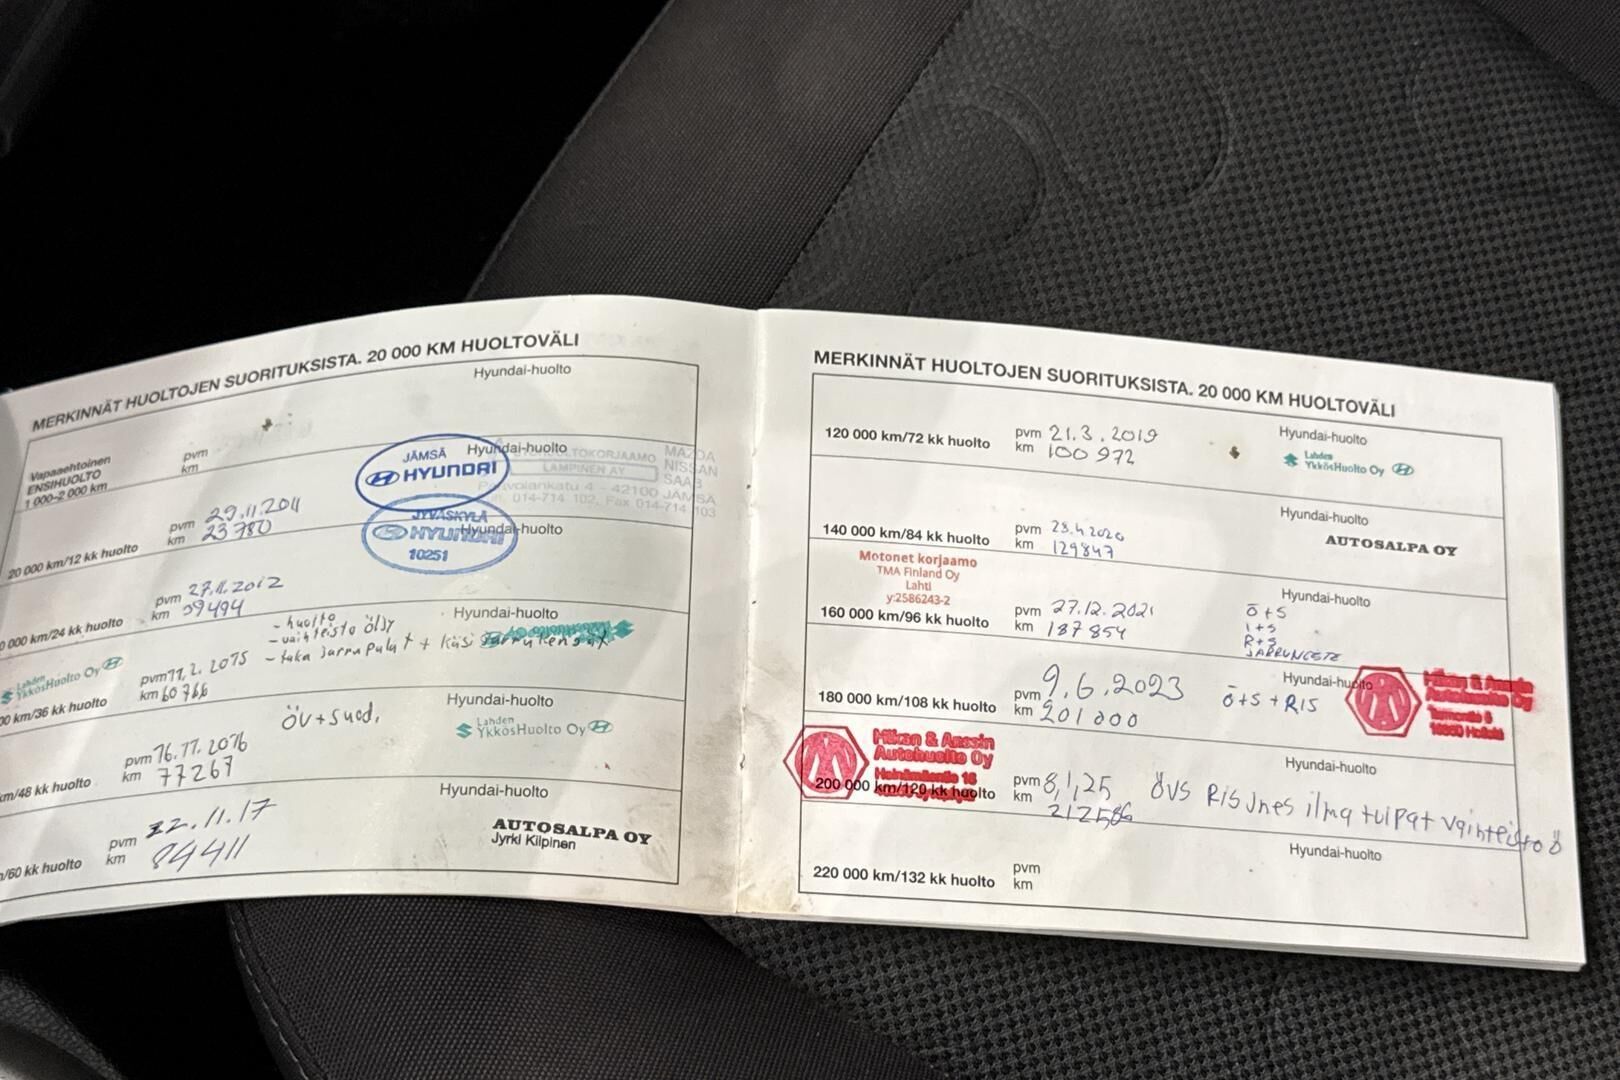 MERKINNÄT HUOLTOJEN SUORITUKSISTA. 20 000 KM HUOLTOVÄLI
Hyundai-huolto
Vapaaehtoinen
ENSIHUOLTO
1 000-2 000 km
pvm
km
JÄMSÄ
HYUNDAI
Hyundai-huolto
KORJAAMO
LAMPINEN AY
4 - 42100 JÄMSÄ
014-714 102, Fax 014-714 103
MAZDA
NISSAN
SAAB
20 000 km/12 kk huolto
pvm 29.11.2011
km 23780
JYVÄSKYLÄ
HYUNDAI
10251
Hyundai-huolto
000 km/24 kk huolto
pvm 27.11.2012
km 39494
Hyundai-huolto
- huolto
- vaihteisto öljy
- taka jarrupalat + käsi
Lahden
YkkösHuolto Oy
00 km/36 kk huolto
pvm 11.2.2015
km 60766
Hyundai-huolto
öv + suod.
Lahden
YkkösHuolto Oy
km/48 kk huolto
pvm 16.11.2016
km 77267
Hyundai-huolto
/60 kk huolto
pvm 22.11.17
km 84411
AUTOSALPA OY
Jyrki Kilpinen
MERKINNÄT HUOLTOJEN SUORITUKSISTA. 20 000 KM HUOLTOVÄLI
120 000 km/72 kk huolto
pvm 21.3.2019
km 100 972
Hyundai-huolto
Lahden
YkkösHuolto Oy
140 000 km/84 kk huolto
pvm 28.4.2020
km 129847
Hyundai-huolto
AUTOSALPA OY
Motonet korjaamo
TMA Finland Oy
Lahti
y:2586243-2
160 000 km/96 kk huolto
pvm 27.12.2021
km 187854
Hyundai-huolto
Ö+S
I+S
R+S
JARRUNESTE
180 000 km/108 kk huolto
pvm 9.6.2023
km 201000
Hyundai-huolto
Ö+S + RIS
Mikan & Anssin
Autohuolto Oy
Mikan & Anssin
Autohuolto Oy
200 000 km/120 kk huolto
pvm 8,1,25
km 212586
Hyundai-huolto
ÖVS RISJnes ilma tulpat vaihteisto ö
220 000 km/132 kk huolto
pvm
km
Hyundai-huolto